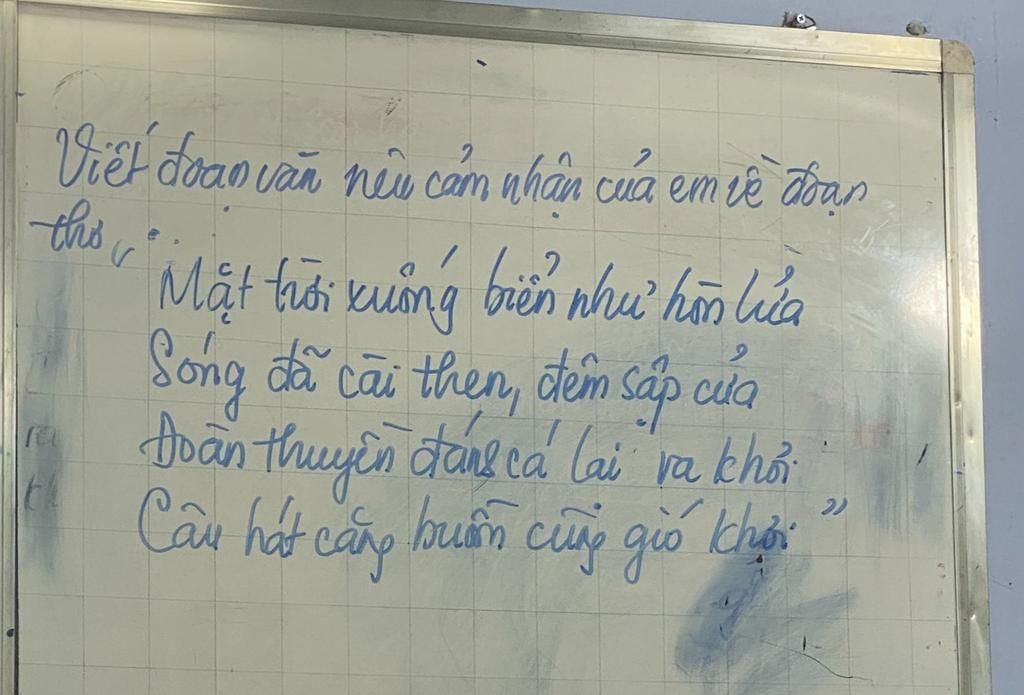 Viết đoạn văn nêu cảm nhận của em về đoạn
thơ "
Mặt trời xuống biển như hòn lửa
Sóng đã cài then, đêm sập cửa
Đoàn thuyền đánh cá lại ra khơi
Câu hát căng buồm cùng gió khơi"